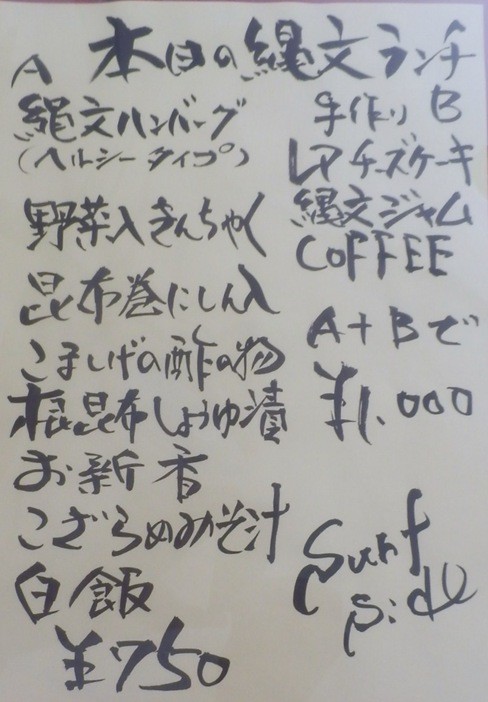 本日の縄文ランチ
A
縄文ハンバーグ
(ヘルシータイプ)
野菜入きんちゃく
昆布巻にしん入
こまいげの酢の物
根昆布しょうゆ漬
お新香
こざらめみそ汁
白飯
¥750
手作り B
レアチーズケーキ
縄文ジャム
COFFEE
A+Bで
¥1,000
Surf
Side